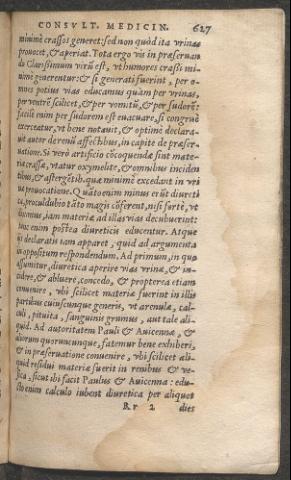 CONSVLT. MEDICIN. 627
minimè crassos generet: sed non quòd ita vrinas
prouocet, & aperiat. Tota ergo vis in præseruan
do Clarissimum virũ est, vt humores crassi mi-
nimè generentur: & si generati fuerint, per o-
mnes potius vias educamus quàm per vrinas,
per ventrẽ scilicet, & per vomitũ, & per sudorẽ:
facilè enim per sudorem est euacuare, si congruè
exerceatur, vt bene notauit, & optimè declara-
uit autor de renũ affectibus, in capite de præser-
uatione. Si verò artificio cõcoquendæ sint mate-
riæ crassæ, vtatur oxymelite, & omnibus inciden
tibus, & abstergẽtib. quæ minimè excedant in vri
næ prouocatione. Quãto enim minus erũt diureti
ca, proculdubio tãto magis cõferent, nisi fortè, vt
diximus, iam materiæ ad illas vias decubuerint:
tunc enim postea diureticis educentur. Atque
declaratis iam apparet, quid ad argumenta
in oppositum respondendum. Ad primum, in quo
assumitur, diuretica aperire vias vrinæ, & in-
cidere, & abluere, concedo, & propterea etiam
conuenire, vbi scilicet materiæ fuerint in illis
partibus cuiuscunque generis, vt arenulæ, cal-
culi, pituita, sanguinis grumus, aut tale ali-
quid. Ad autoritatem Pauli & Auicennæ, &
aliorum quoruncunque, fatemur bene exhiberi,
& in præseruatione conuenire, vbi scilicet ali-
quid residui materiæ fuerit in renibus & ve-
sica, sicut ibi facit Paulus & Auicenna: edu-
cto enim calculo iubent diuretica per aliquot
Rr 2 dies